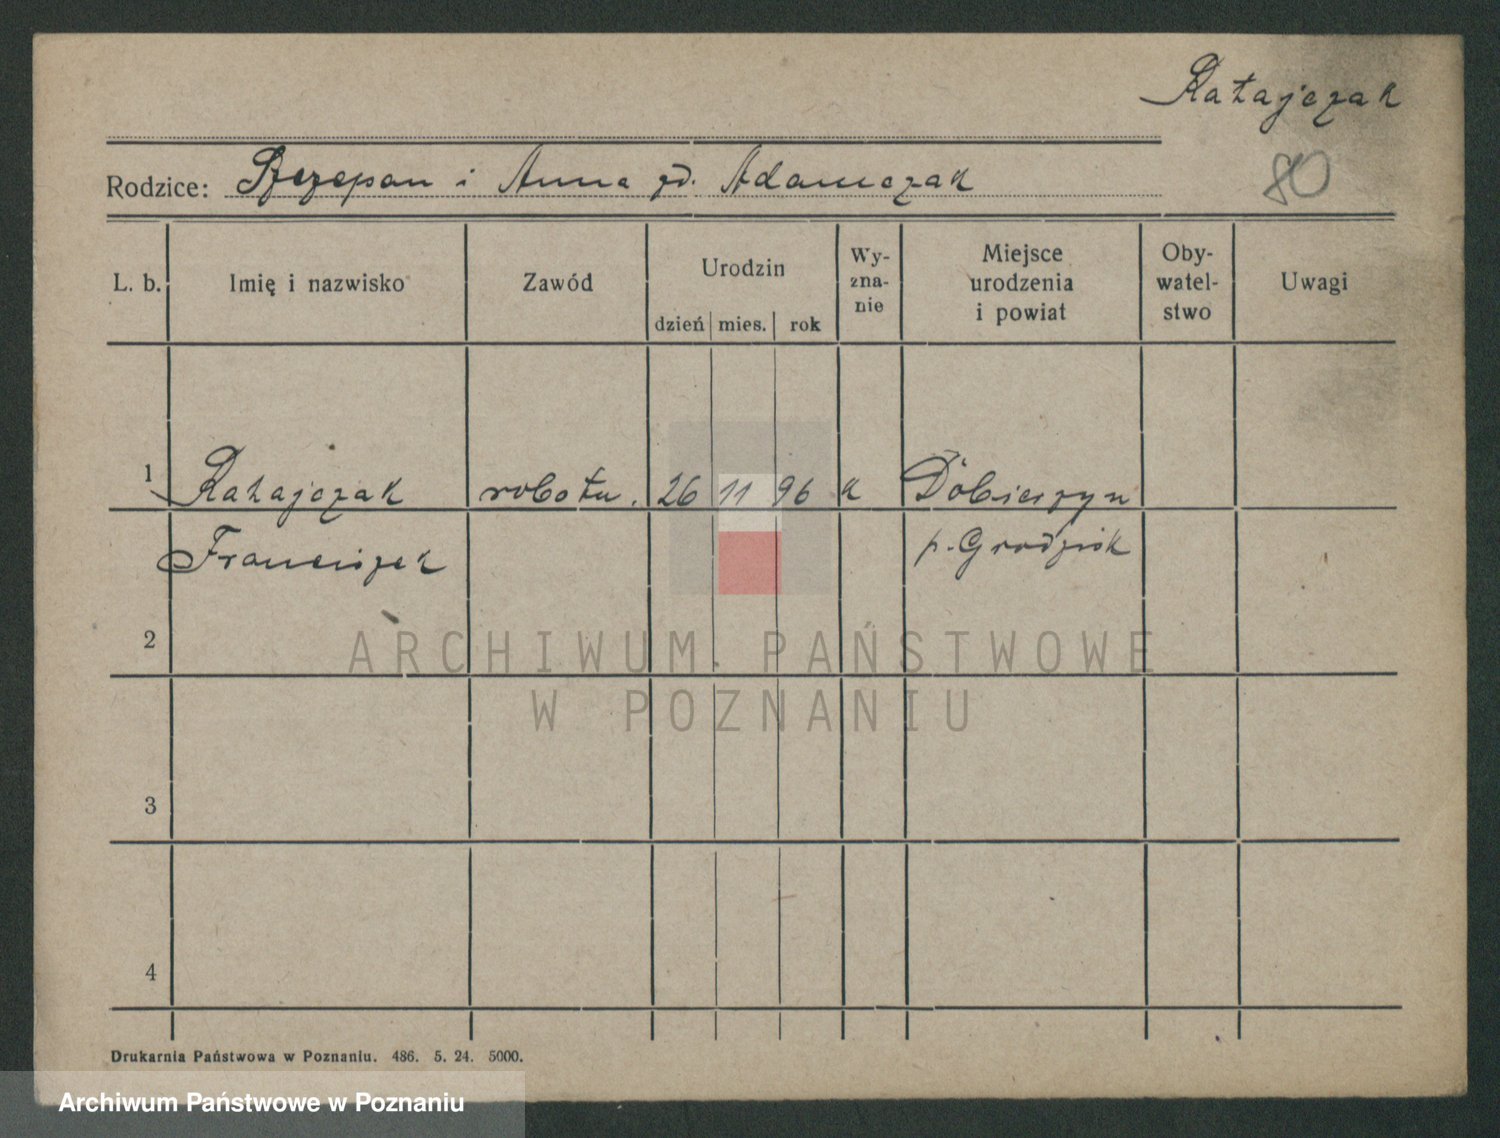 Ratajczak
80
Rodzice: Szczepan i Anna zd. Adamczak
L. b. Imię i nazwisko Zawód Urodzin dzień mies. rok Wy-zna-nie Miejsce urodzenia i powiat Oby-watel-stwo Uwagi
1 Ratajczak robotn. 26 11 96 k Dobieżyn
Franciszek p. Grodzisk
2
3
4
Drukarnia Państwowa w Poznaniu. 486. 5. 24. 5000.
ARCHIWUM PAŃSTWOWE
W POZNANIU
Archiwum Państwowe w Poznaniu